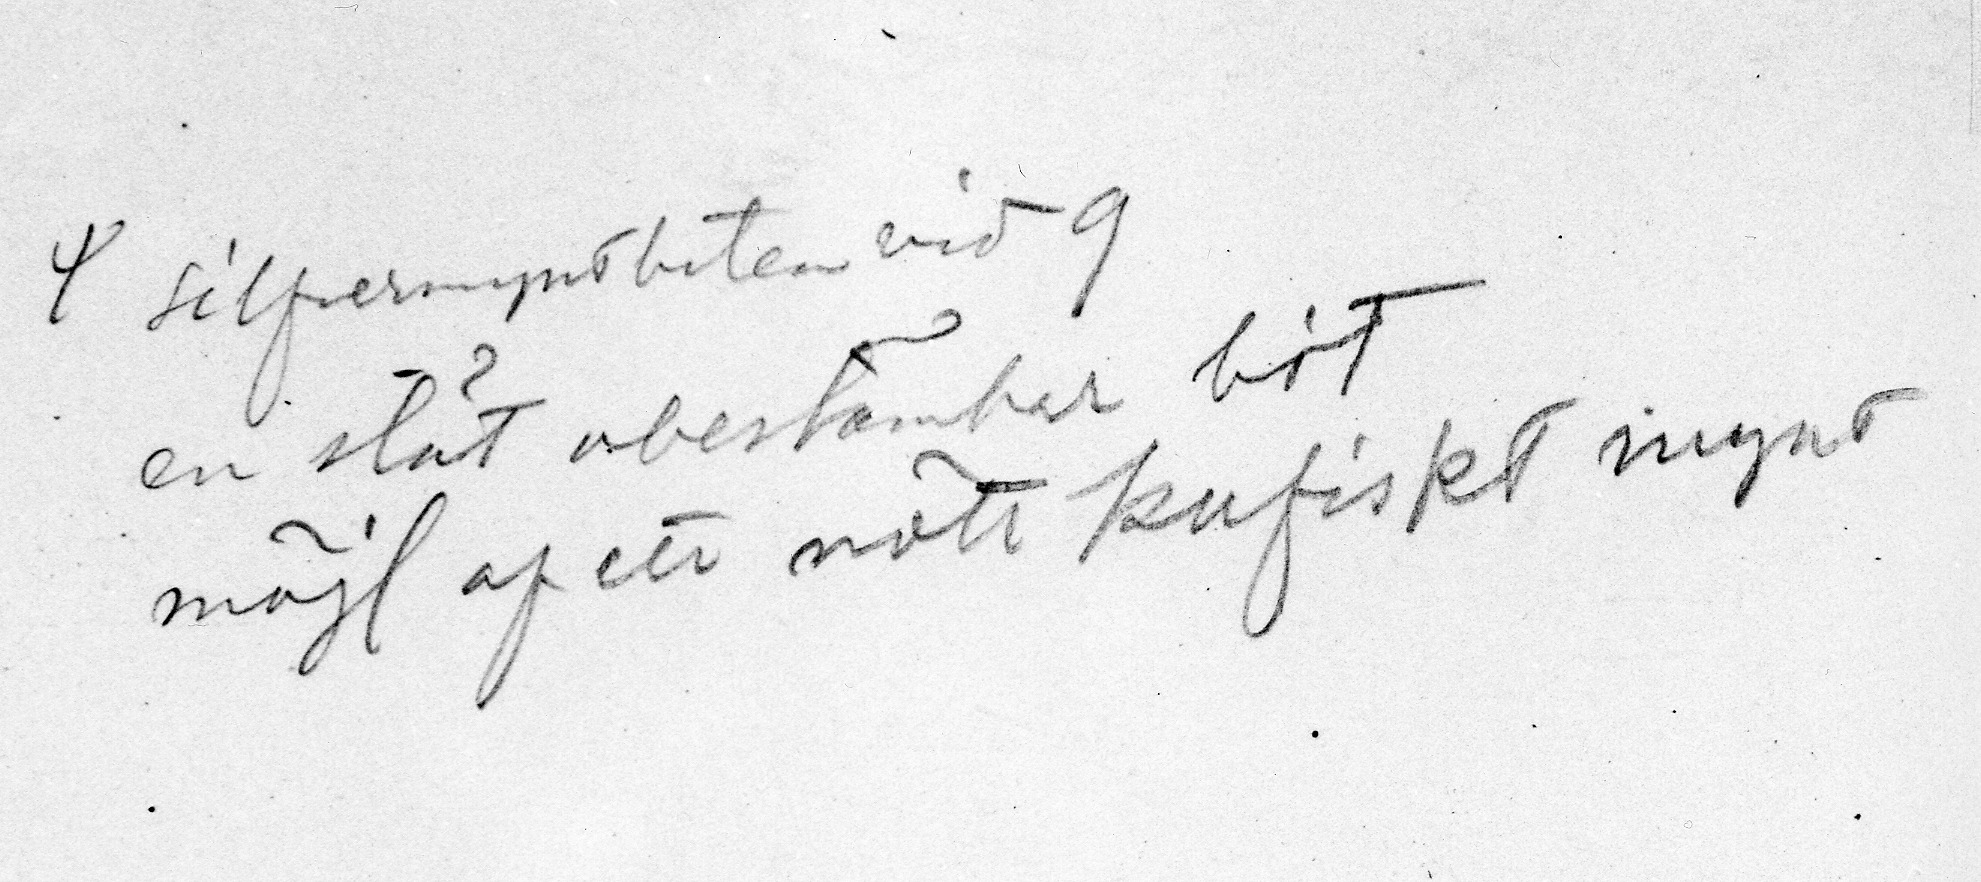 4 silfvermyntbiten vid 9
en slät obestämbar bit
möjl af ett nött kufiskt mynt